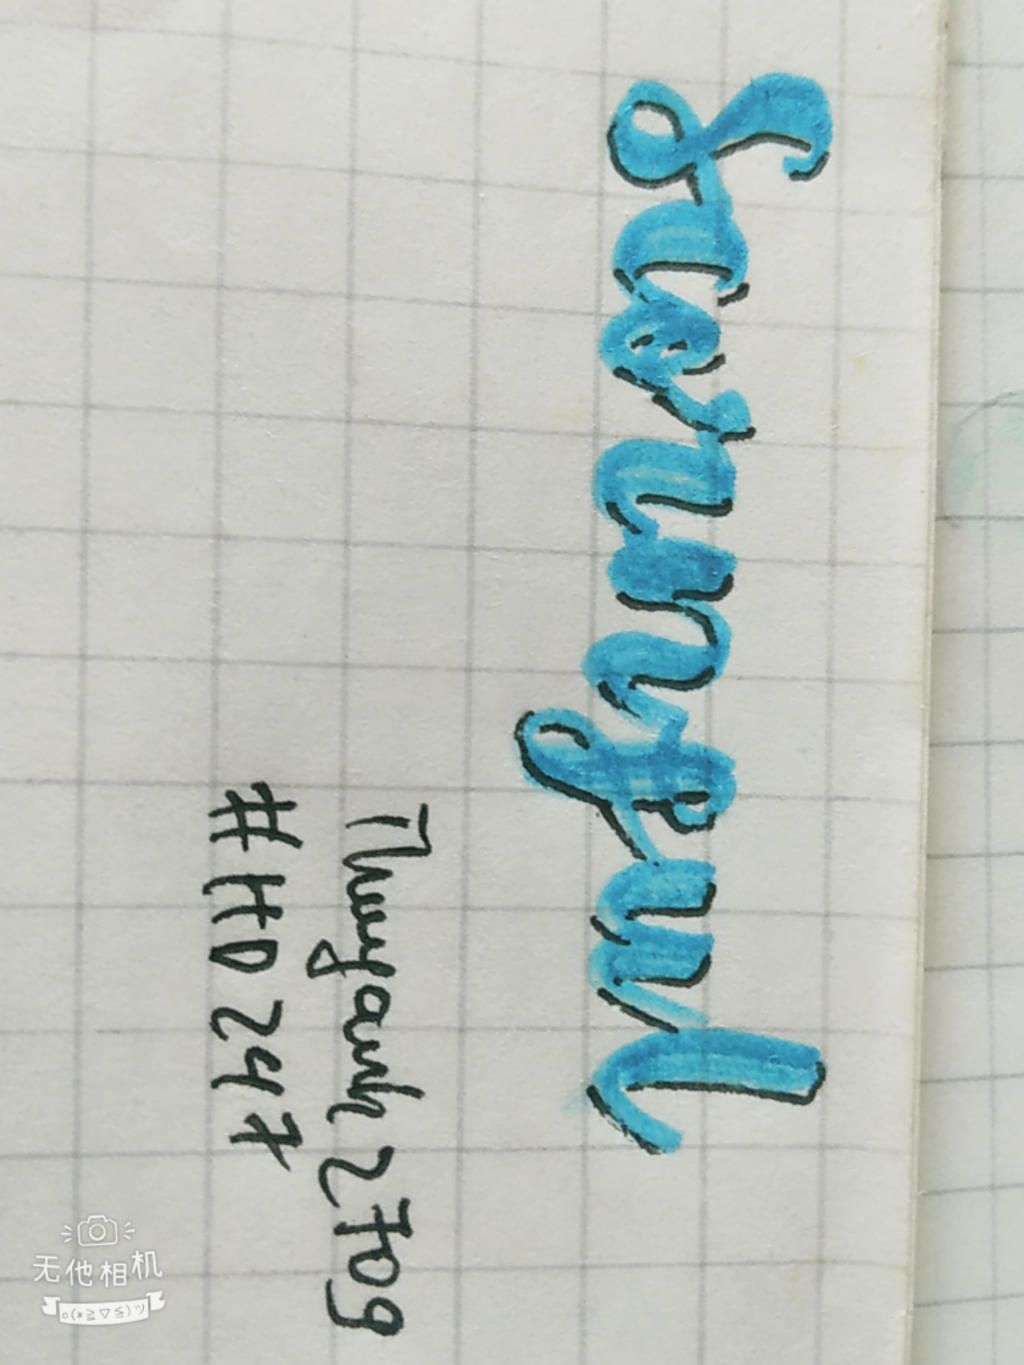 Scornful
Thuyanh2709
#HD247
无他相机
o(*≧▽≦)ツ